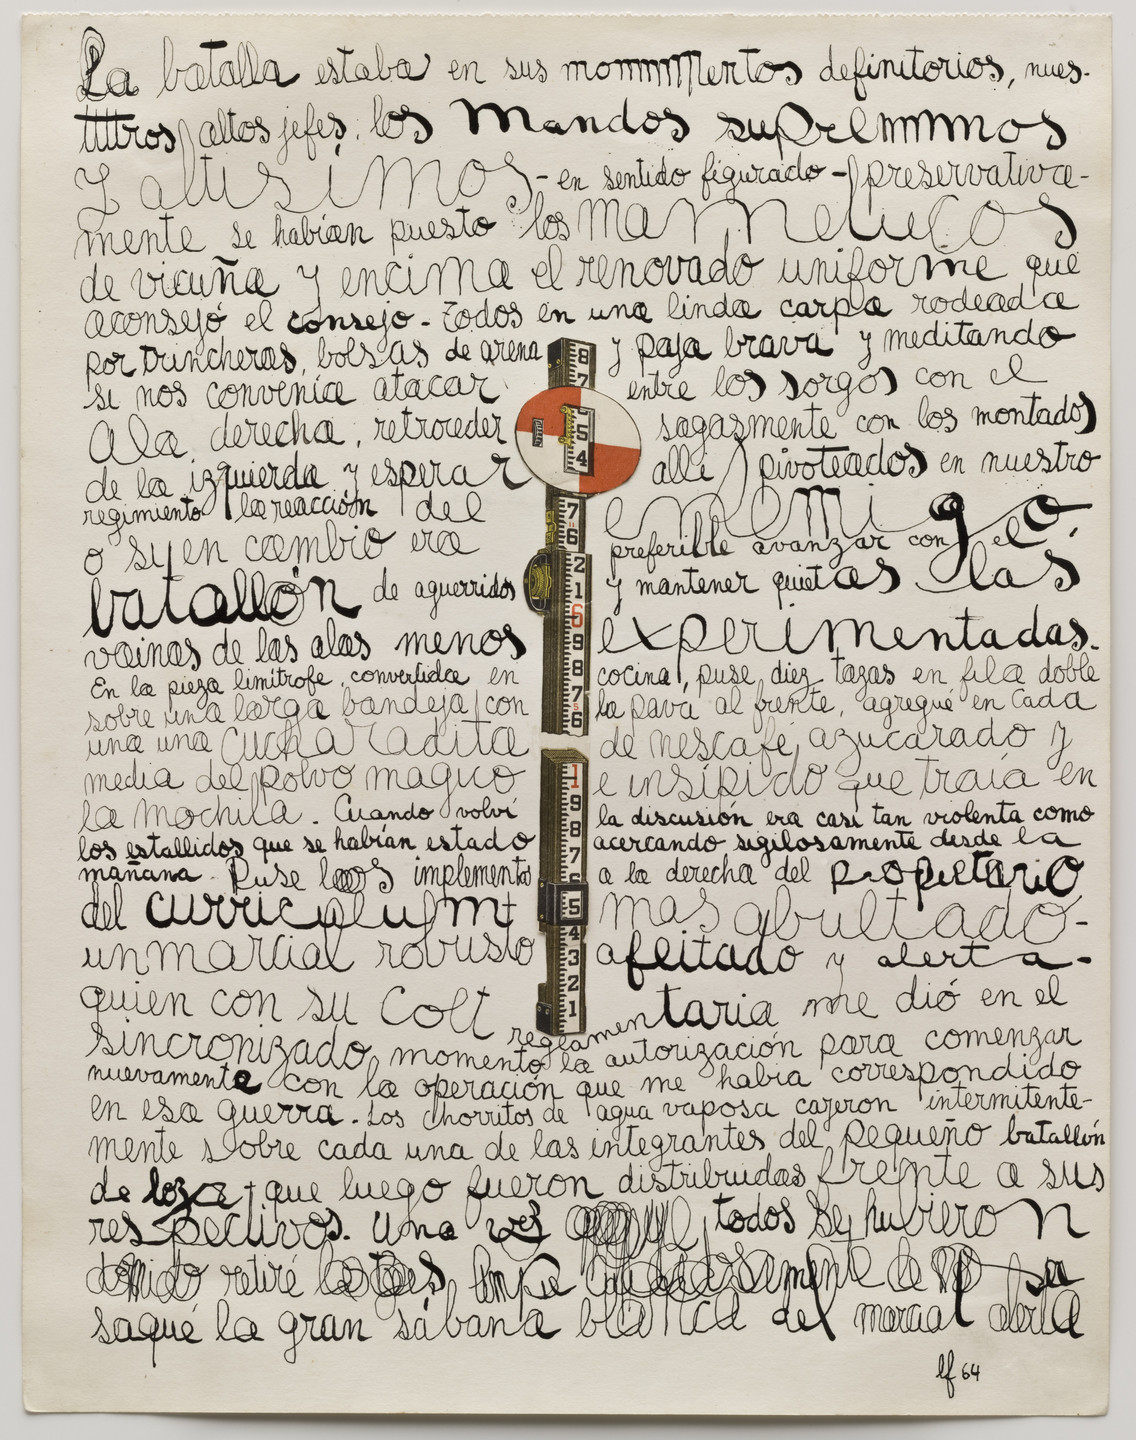 La batalla estaba en sus mommmmentos definitorios, nues-
ttttros altos jefes, los Mandos supremmmmos
y altísimos - en sentido figurado - preservativa-
mente se habían puesto los mamelucos
de vicuña y encima el renovado uniforme que
aconsejó el consejo. Todos en una linda carpa rodeada
por trincheras, bolsas de arena y paja brava y meditando
si nos convenía atacar entre los sorgos con el
ala derecha, retroceder sagazmente con los montados
de la izquierda y esperar allí pivoteados en nuestro
regimiento la reacción del enemigo,
o si en cambio era preferible avanzar con el
batallón de aguerridos y mantener quietas las
vainas de las alas menos experimentadas.
En la pieza limítrofe, convertida en cocina, puse diez tazas en fila doble
sobre una larga bandeja con la pava al frente, agregué en cada
una una cucharadita de nescafé azucarado y
media del polvo magico e insípido que traía en
la mochila. Cuando volví la discusión era casi tan violenta como
los estallidos que se habían estado acercando sigilosamente desde la
mañana. Puse los implementos a la derecha del propietario
del curriculum mas abultado -
un marcial robusto afeitado y alerta -
quien con su Colt reglamentaria me dió en el
sincronizado momento la autorización para comenzar
nuevamente con la operación que me había correspondido
en esa guerra. Los chorritos de agua vaposa cayeron intermitente-
mente sobre cada una de las integrantes del pequeño batallón
de loza que luego fueron distribuidas frente a sus
respectivos. Una vez que todos se hubieron
dormido retiré las tazas,
saqué la gran sábana blanca del marcial alerta
lf 64
8
7
5
4
7
6
2
1
6
9
8
7
6
1
9
8
7
6
5
4
3
2
1